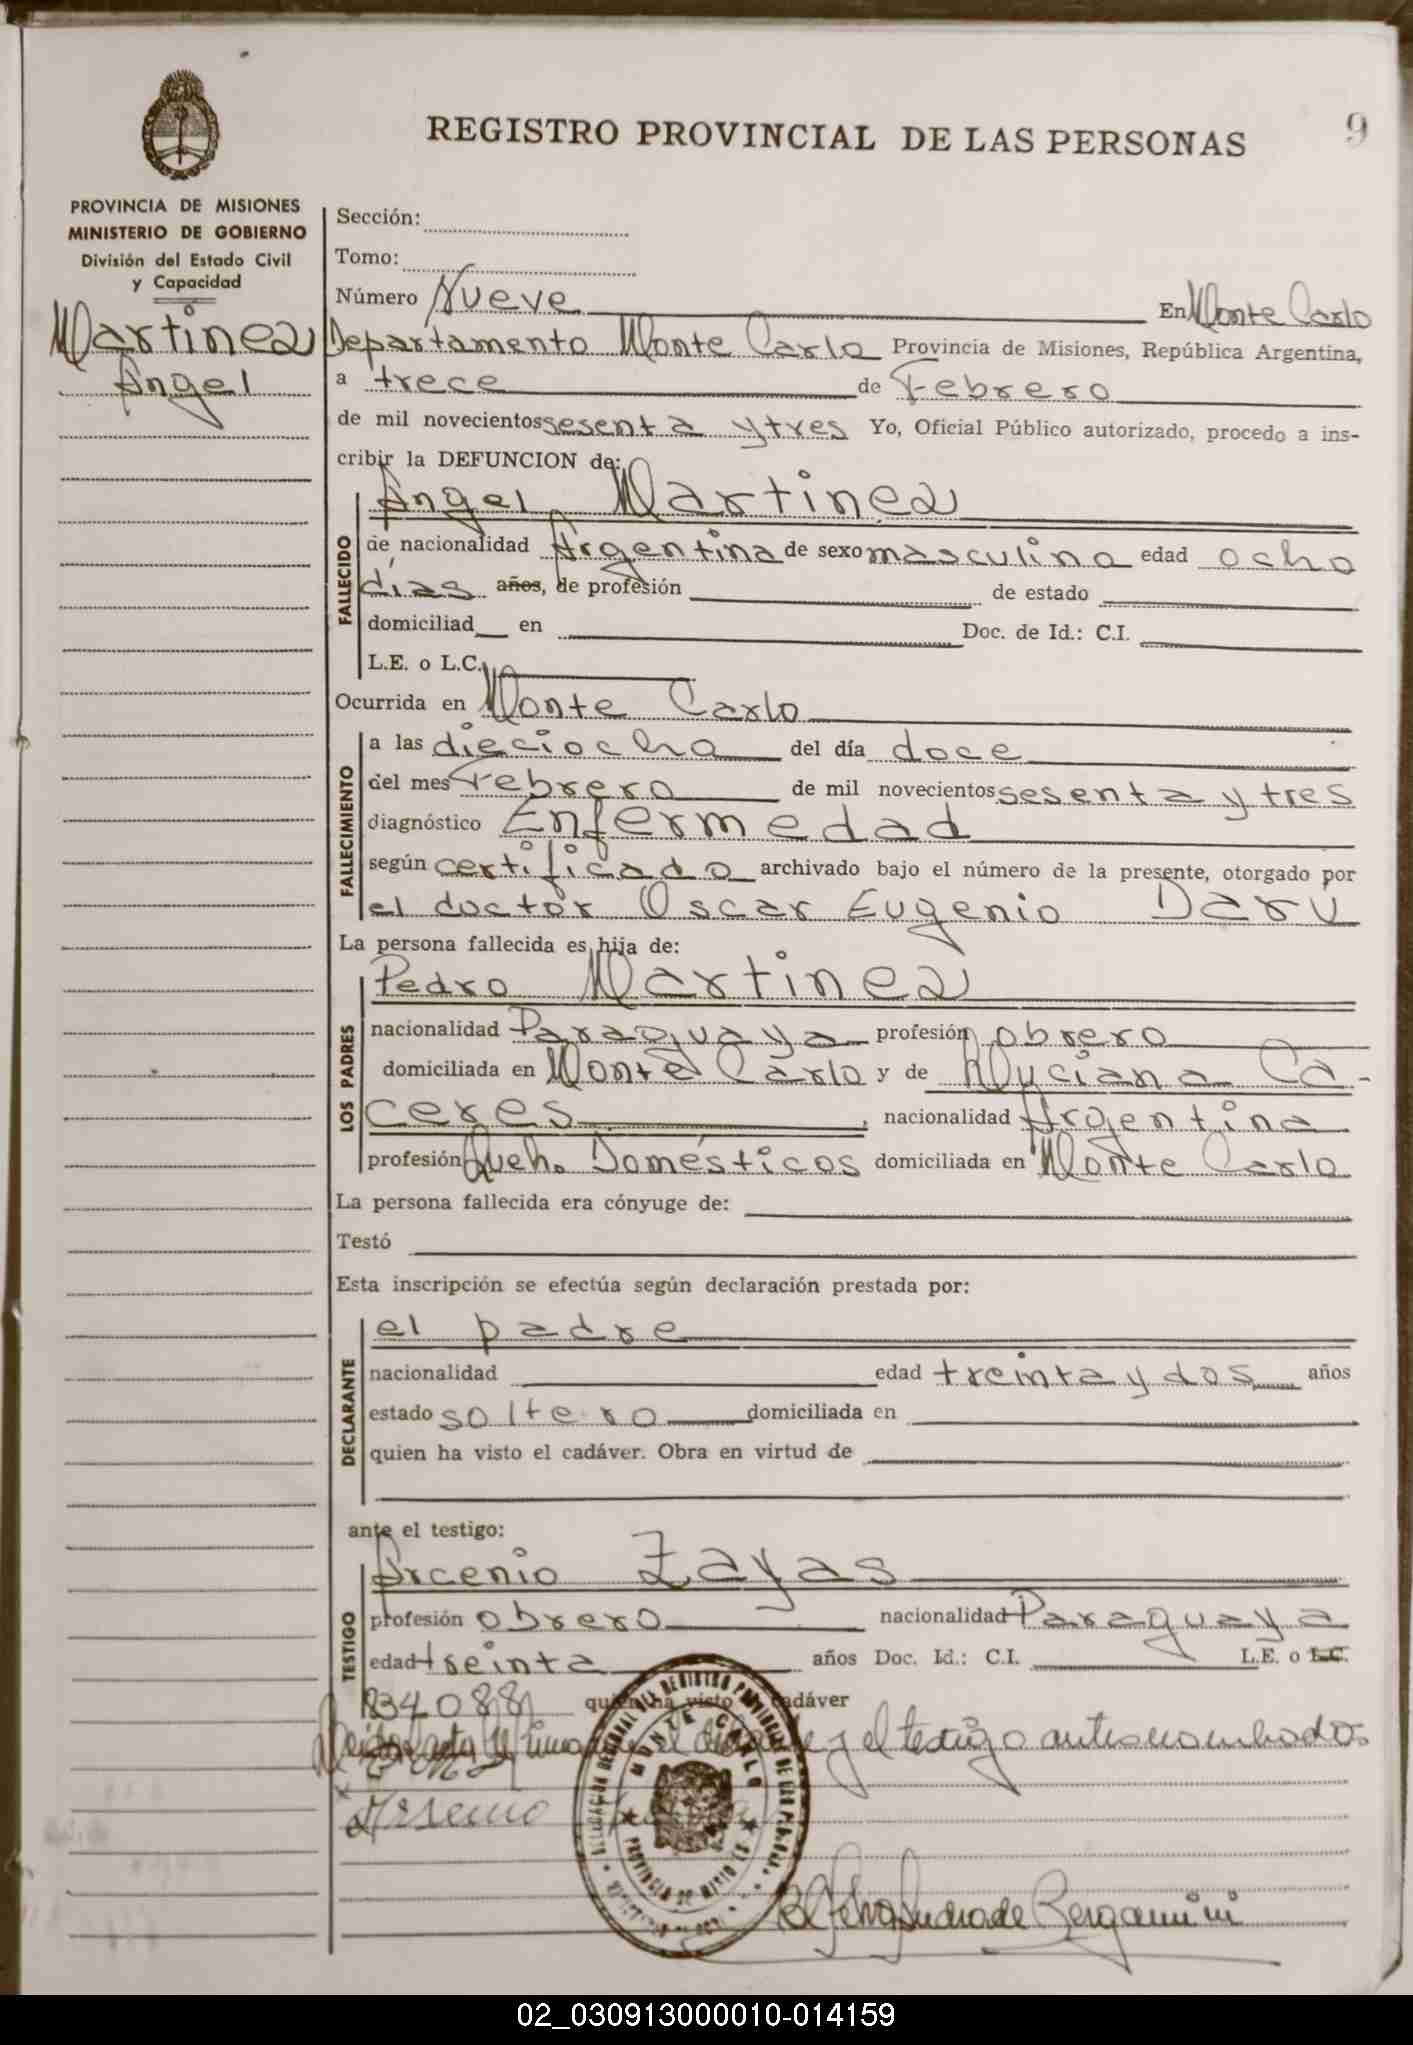 REGISTRO PROVINCIAL DE LAS PERSONAS
9
PROVINCIA DE MISIONES
MINISTERIO DE GOBIERNO
División del Estado Civil
y Capacidad
Martinez
Angel
Sección:
Tomo:
Número Nueve En Monte Carlo
Departamento Monte Carlo Provincia de Misiones, República Argentina,
a trece de Febrero
de mil novecientos sesenta y tres Yo, Oficial Público autorizado, procedo a ins-
cribir la DEFUNCION de:
Angel Martinez
FALLECIDO
de nacionalidad Argentina de sexo masculino edad ocho
días años, de profesión de estado
domiciliad en Doc. de Id.: C.I.
L.E. o L.C.
Ocurrida en Monte Carlo
FALLECIMIENTO
a las dieciocho del día doce
del mes Febrero de mil novecientos sesenta y tres
diagnóstico Enfermedad
según certificado archivado bajo el número de la presente, otorgado por
el doctor Oscar Eugenio Darú
La persona fallecida es hija de:
LOS PADRES
Pedro Martinez
nacionalidad Paraguaya profesión obrero
domiciliada en Monte Carlo y de Ca-
ceres, nacionalidad Argentina
profesión Queh. Domésticos domiciliada en Monte Carlo
La persona fallecida era cónyuge de:
Testó
Esta inscripción se efectúa según declaración prestada por:
DECLARANTE
el padre
nacionalidad edad treinta y dos años
estado soltero domiciliada en
quien ha visto el cadáver. Obra en virtud de
ante el testigo:
TESTIGO
Arcenio Zayas
profesión obrero nacionalidad Paraguaya
edad treinta años Doc. Id.: C.I. L.E. o L.C.
quien ha visto cadáver
y el testigo antes nombrados
MONTE CARLO
PROVINCIA DE MISIONES
de Bergamini
02_030913000010-014159